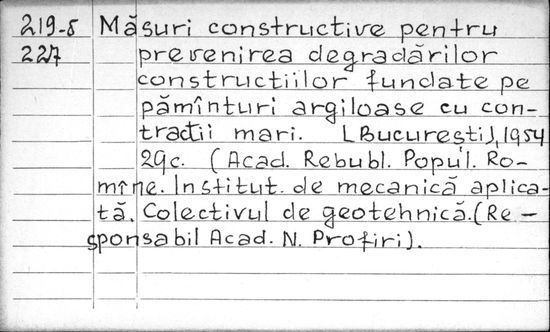 219-5 Măsuri constructive pentru
227 prevenirea degradărilor
constructiilor fundate pe
pămînturi argiloase cu con-
tractii mari. [Bucuresti], 1954
29c. (Acad. Rebubl. Popul. Ro-
mîne. Institut. de mecanică aplica-
tă. Colectivul de geotehnică. (Re-
sponsabil Acad. N. Profiri).